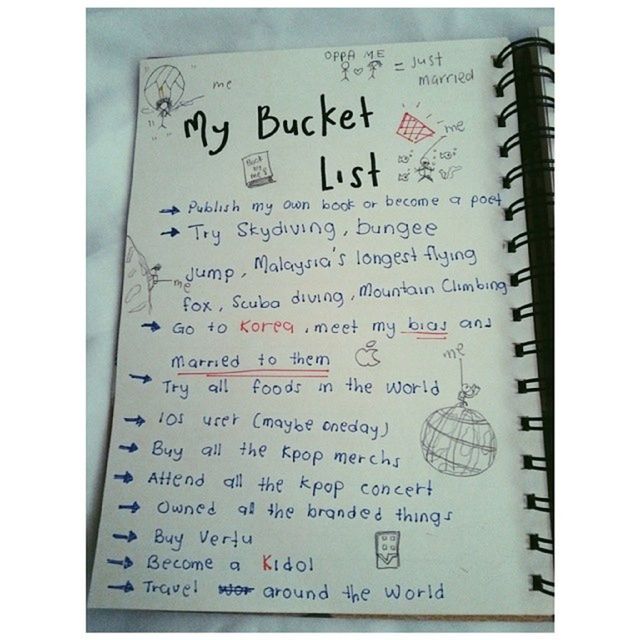 OPPA ME
= just
married
me
My Bucket
List
me
Book
by
me's
→ Publish my own book or become a poet
→ Try Skydiving, bungee
jump, Malaysia's longest flying
fox, Scuba diving, Mountain Climbing
me
→ Go to Korea, meet my bias and
married to them
me
→ Try all foods in the world
→ IOS user (maybe oneday)
→ Buy all the Kpop merchs
→ Attend all the Kpop concert
→ Owned all the branded things
→ Buy Vertu
→ Become a Kidol
→ Travel around the World